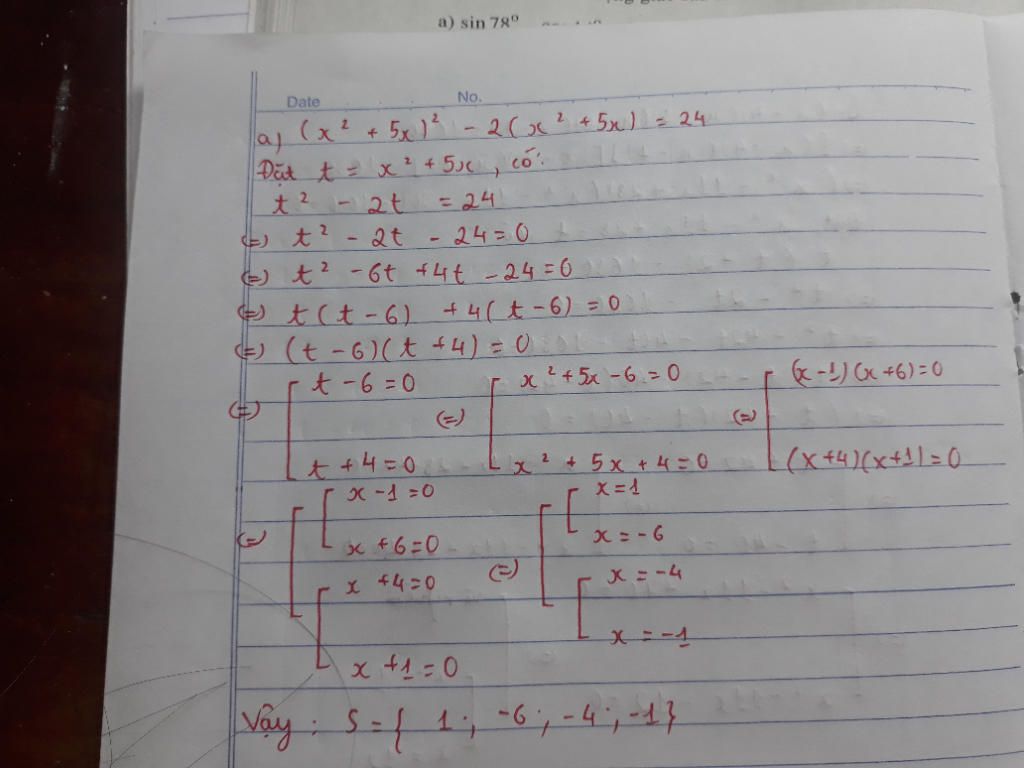 a) sin 78⁰
Date No.
a) (x² + 5x)² - 2(x² + 5x) = 24
Đặt t = x² + 5x, có:
t² - 2t = 24
(=) t² - 2t - 24 = 0
(=) t² - 6t + 4t - 24 = 0
(=) t(t - 6) + 4(t - 6) = 0
(=) (t - 6)(t + 4) = 0
(=) [ t - 6 = 0 (=) [ x² + 5x - 6 = 0 (=) [ (x - 1)(x + 6) = 0
t + 4 = 0 x² + 5x + 4 = 0 (x + 4)(x + 1) = 0
(=) [ [ x - 1 = 0 (=) [ [ x = 1
x + 6 = 0 x = -6
[ x + 4 = 0 [ x = -4
x + 1 = 0 x = -1
Vậy : S = { 1 ; -6 ; -4 ; -1}